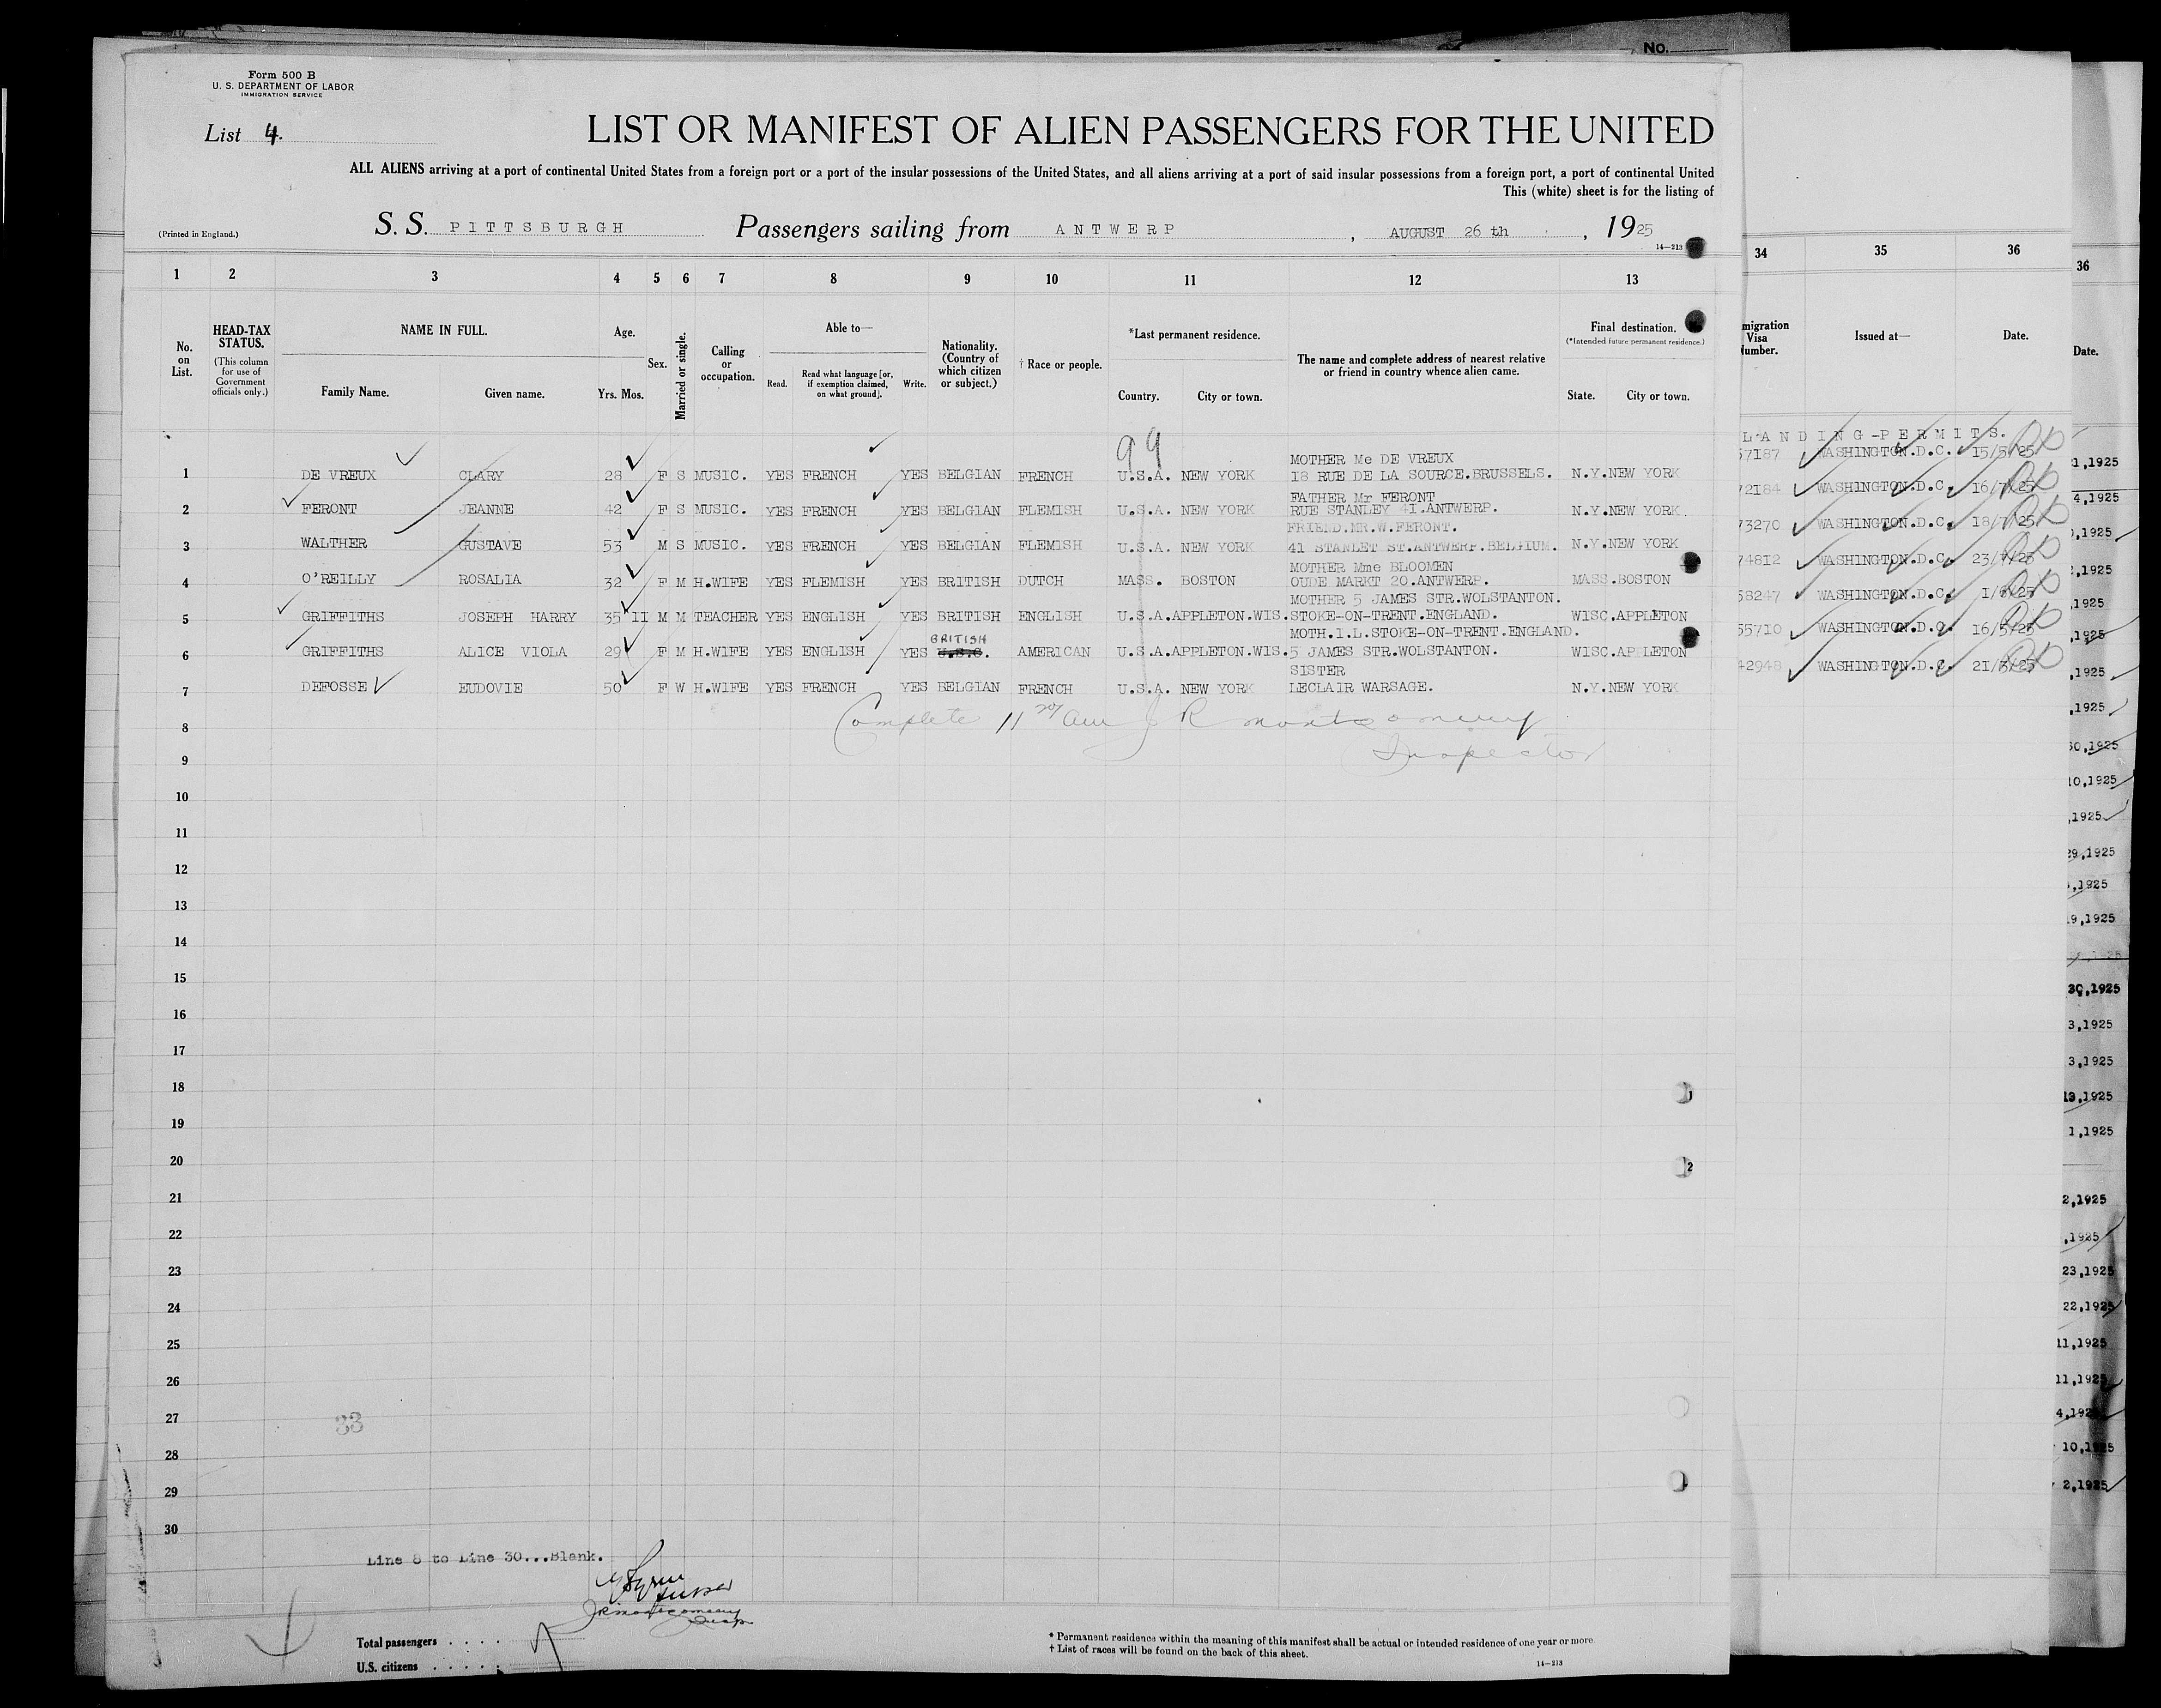 No.
Form 500 B
U. S. DEPARTMENT OF LABOR
IMMIGRATION SERVICE
List 4.
LIST OR MANIFEST OF ALIEN PASSENGERS FOR THE UNITED
ALL ALIENS arriving at a port of continental United States from a foreign port or a port of the insular possessions of the United States, and all aliens arriving at a port of said insular possessions from a foreign port, a port of continental United
This (white) sheet is for the listing of
(Printed in England.) S. S. PITTSBURGH Passengers sailing from ANTWERP, AUGUST 26 th, 1925
14—213
1 2 3 4 5 6 7 8 9 10 11 12 13 34 35 36 36
No. on List.
HEAD-TAX STATUS.
(This column for use of Government officials only.)
NAME IN FULL.
Family Name. Given name.
Age.
Yrs. Mos.
Sex.
Married or single.
Calling or occupation.
Able to—
Read. Read what language [or, if exemption claimed, on what ground]. Write.
Nationality. (Country of which citizen or subject.)
† Race or people.
*Last permanent residence.
Country. City or town.
The name and complete address of nearest relative or friend in country whence alien came.
Final destination.
(*Intended future permanent residence.)
State. City or town.
migration Visa Number.
Issued at—
Date.
Date.
99
LANDING-PERMITS.
MOTHER Me DE VREUX
1 DE VREUX CLARY 28 F S MUSIC. YES FRENCH YES BELGIAN FRENCH U.S.A. NEW YORK 18 RUE DE LA SOURCE.BRUSSELS. N.Y.NEW YORK 57187 WASHINGTON.D.C. 15/5/25
FATHER Mr FERONT
2 FERONT JEANNE 42 F S MUSIC. YES FRENCH YES BELGIAN FLEMISH U.S.A. NEW YORK RUE STANLEY 41.ANTWERP. N.Y.NEW YORK. 72184 WASHINGTON.D.C. 16/7/25
FRIEND.MR.W.FERONT.
3 WALTHER GUSTAVE 53 M S MUSIC. YES FRENCH YES BELGIAN FLEMISH U.S.A. NEW YORK 41 STANLET ST.ANTWERP.BELGIUM. N.Y.NEW YORK 73270 WASHINGTON.D.C. 18/7/25
MOTHER Mme BLOOMEN
4 O'REILLY ROSALIA 32 F M H.WIFE YES FLEMISH YES BRITISH DUTCH MASS. BOSTON OUDE MARKT 20.ANTWERP. MASS.BOSTON 74812 WASHINGTON.D.C. 23/7/25
MOTHER 5 JAMES STR.WOLSTANTON.
5 GRIFFITHS JOSEPH HARRY 35 11 M M TEACHER YES ENGLISH YES BRITISH ENGLISH U.S.A.APPLETON.WIS. STOKE-ON-TRENT.ENGLAND. WISC.APPLETON 58247 WASHINGTON.D.C. 1/6/25
BRITISH MOTH.I.L.STOKE-ON-TRENT.ENGLAND.
6 GRIFFITHS ALICE VIOLA 29 F M H.WIFE YES ENGLISH YES U.S.C. AMERICAN U.S.A.APPLETON.WIS. 5 JAMES STR.WOLSTANTON. WISC.APPLETON 55710 WASHINGTON.D.C. 16/5/25
SISTER
7 DEFOSSE EUDOVIE 50 F W H.WIFE YES FRENCH YES BELGIAN FRENCH U.S.A. NEW YORK LECLAIR WARSAGE. N.Y.NEW YORK 42948 WASHINGTON.D.C. 21/3/25
Complete 11 am J R Montgomery
Inspector
8
9
10
11
12
13
14
15
16
17
18
19
20
21
22
23
24
25
26
27
28
29
30
33
Line 8 to Line 30...Blank.
JR Montgomery
Insp
Total passengers . . . .
U.S. citizens . . . . .
* Permanent residence within the meaning of this manifest shall be actual or intended residence of one year or more.
† List of races will be found on the back of this sheet.
14—213
1,1925
4,1925
,1925
,1925
,1925
,1925
,1925
,1925
30,1925
10,1925
,1925
29,1925
,1925
19,1925
30,1925
3,1925
3,1925
13,1925
1,1925
2,1925
,1925
23,1925
22,1925
11,1925
11,1925
4,1925
10,1925
2,1925